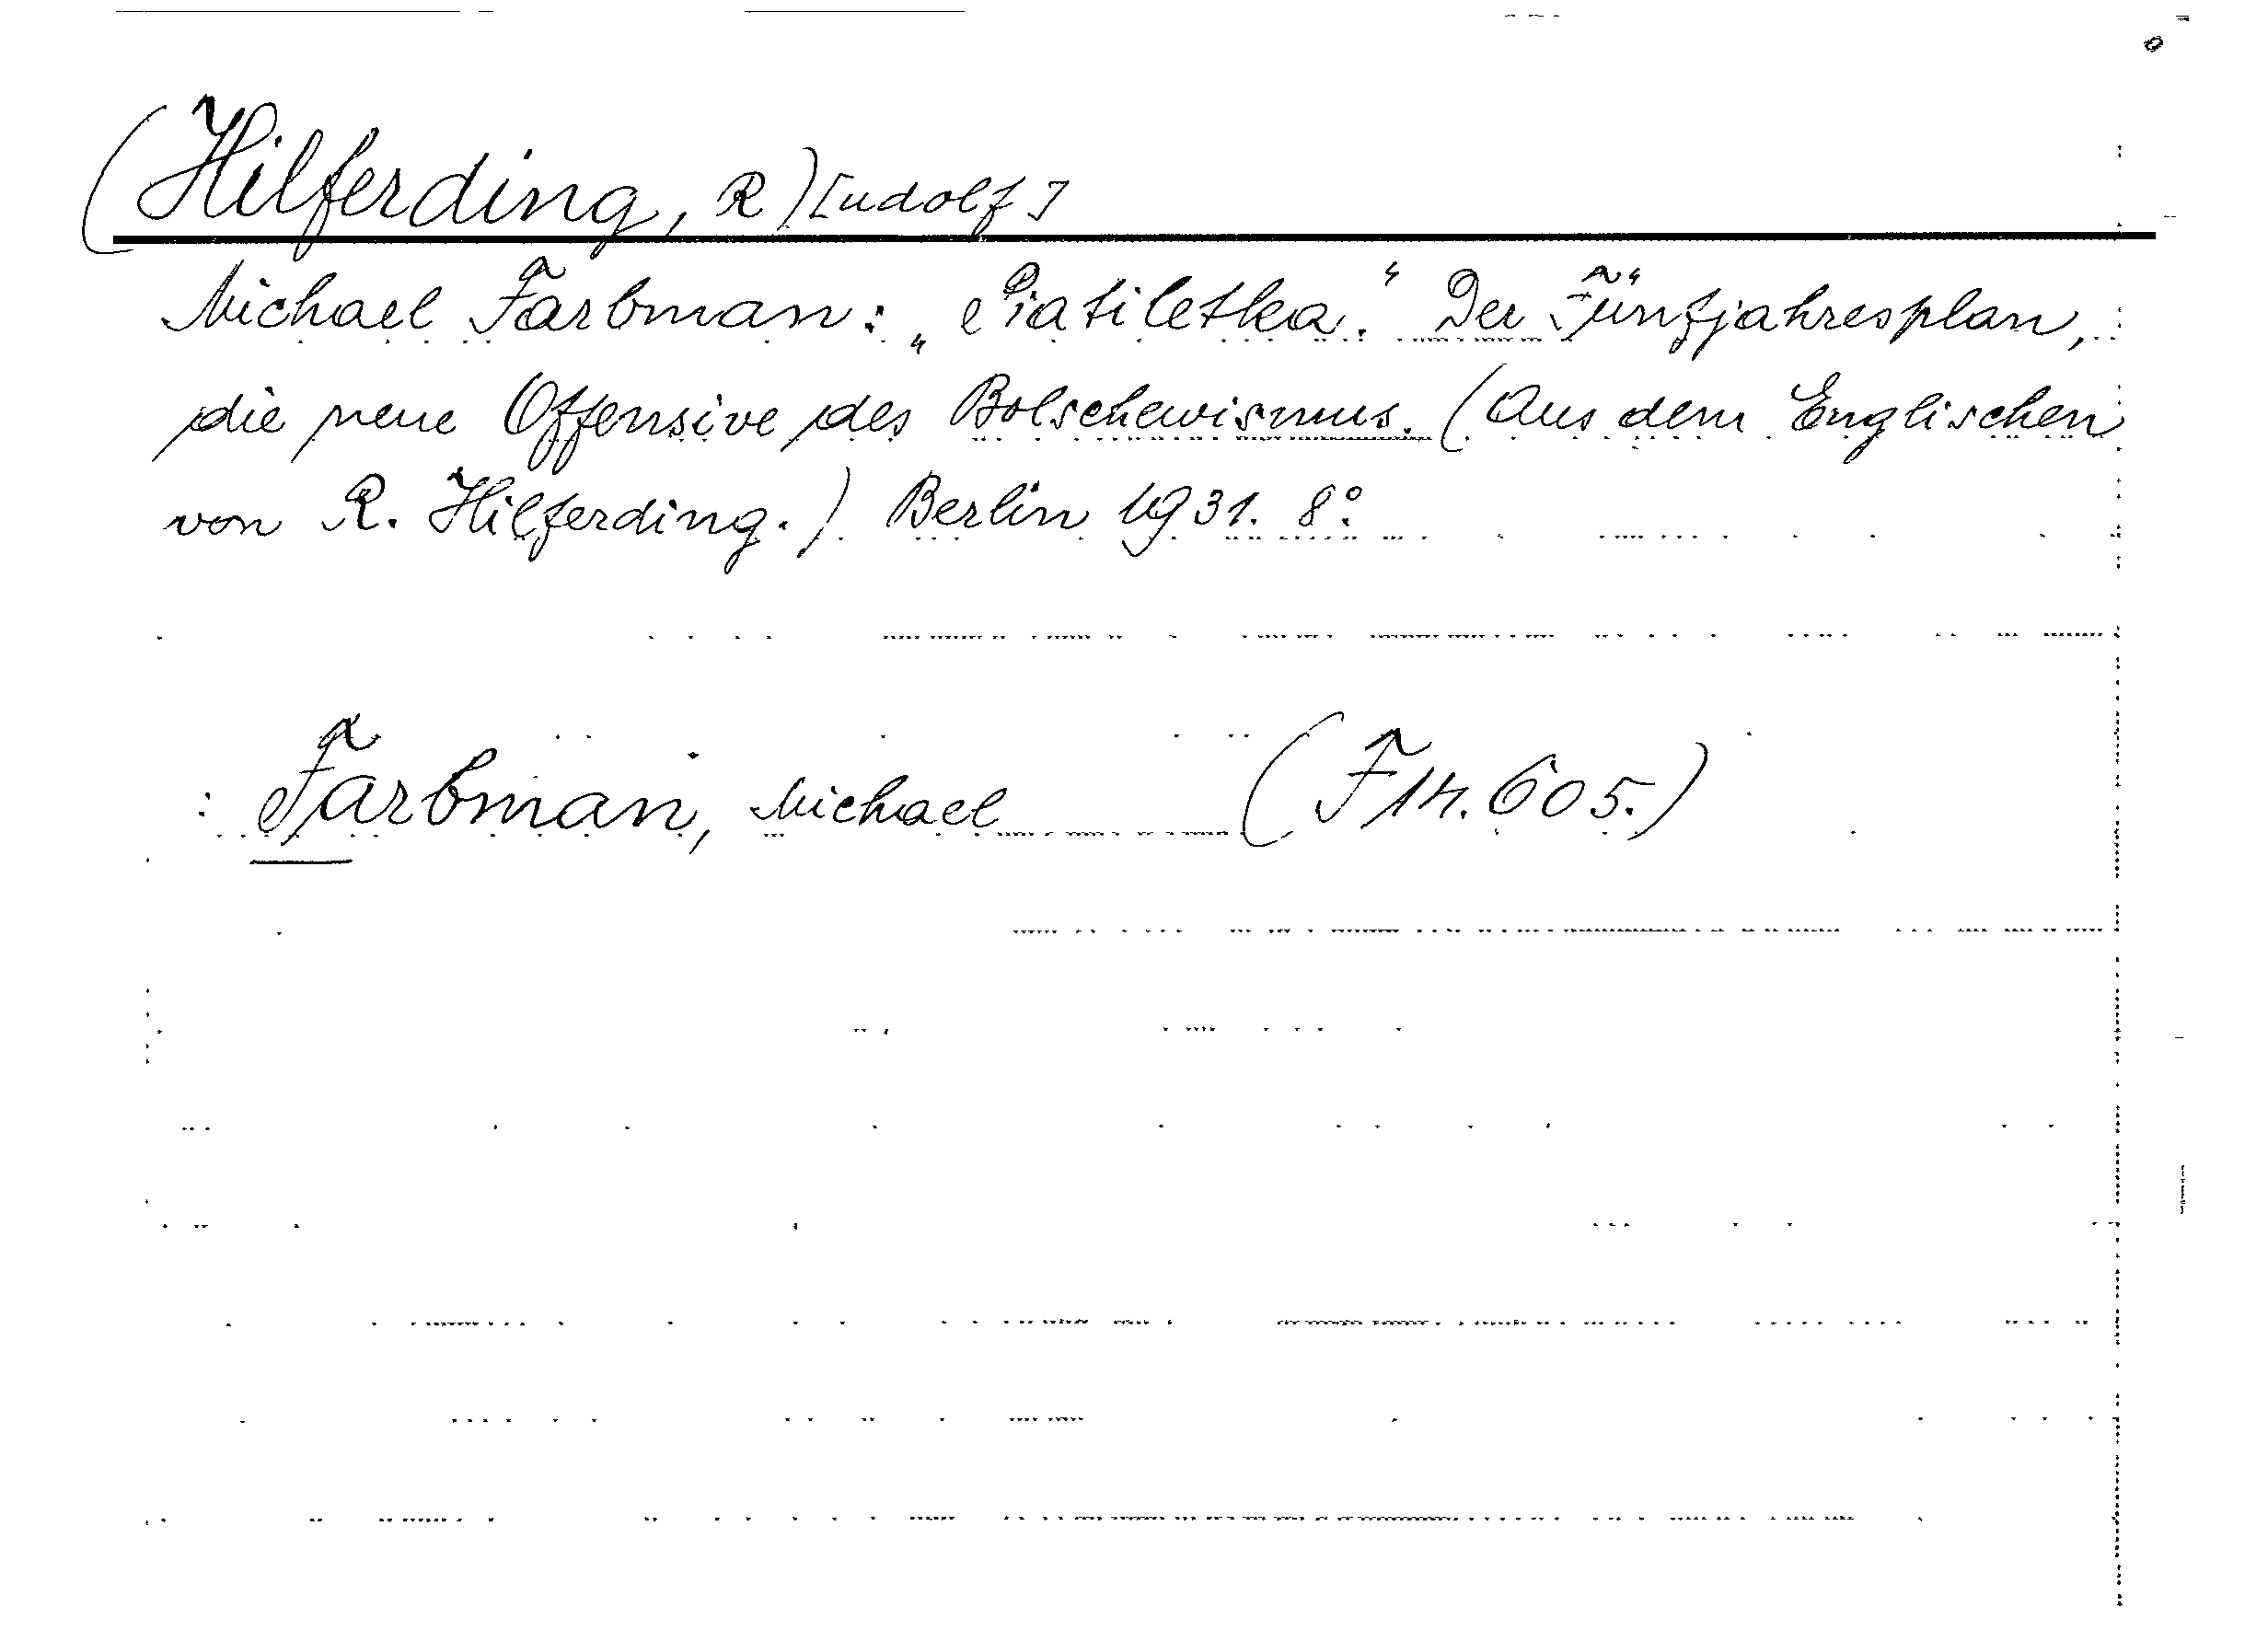 (Hilferding, R)[udolf]
Michael Farbman: „Piatiletka." Der Fünfjahresplan,
die neue Offensive des Bolschewismus. (Aus dem Englischen
von R. Hilferding.) Berlin 1931. 8°.
: Farbman, Michael (F14.605.)